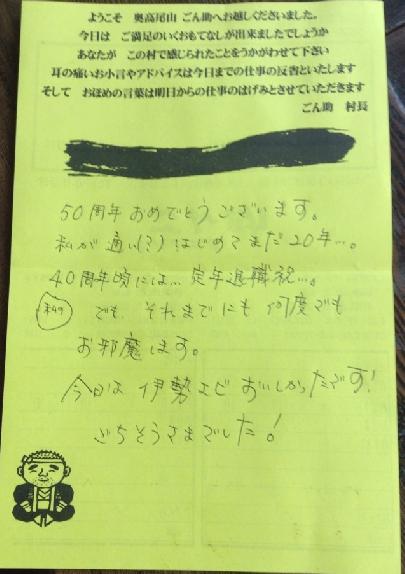 ようこそ 奥高尾山 ごん助へお越しくださいました。
今日は ご満足のいくおもてなしが出来ましたでしょうか
あなたが この村で感じられたことをうかがわせて下さい
耳の痛いお小言やアドバイスは今日までの仕事の反省といたします
そして おほめの言葉は明日からの仕事のはげみとさせていただきます
ごん助 村長
50周年おめでとうございます。
私が通い(?)はじめてまだ20年…。
40周年頃には… 定年退職祝…。
でも、それまでにも何度でも
お邪魔します。
今日は 伊勢えび おいしかったです!
ごちそうさまでした!